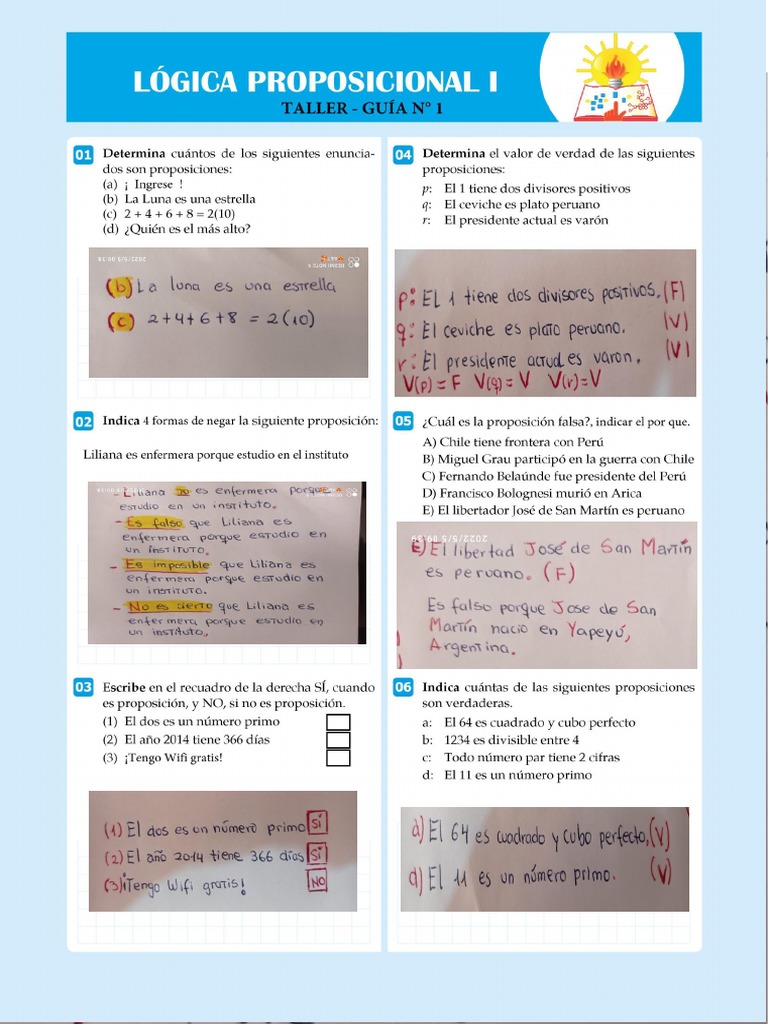 LÓGICA PROPOSICIONAL I
TALLER - GUÍA N° 1
01 Determina cuántos de los siguientes enuncia-
dos son proposiciones:
(a) ¡ Ingrese !
(b) La Luna es una estrella
(c) 2 + 4 + 6 + 8 = 2(10)
(d) ¿Quién es el más alto?
2022/5/5 09:39
REDMI NOTE 8
(b) La luna es una estrella
(c) 2+4+6+8 = 2(10)
02 Indica 4 formas de negar la siguiente proposición:
Liliana es enfermera porque estudio en el instituto
- Liliana no es enfermera porque
estudio en un instituto.
- Es falso que Liliana es
enfermera porque estudio en
un instituto.
- Es imposible que Liliana es
enfermera porque estudio en
un instituto.
- No es cierto que Liliana es
enfermera porque estudio en
un instituto.
03 Escribe en el recuadro de la derecha SÍ, cuando
es proposición, y NO, si no es proposición.
(1) El dos es un número primo
(2) El año 2014 tiene 366 días
(3) ¡Tengo Wifi gratis!
(1) El dos es un número primo SÍ
(2) El año 2014 tiene 366 días SÍ
(3) ¡Tengo Wifi gratis! NO
04 Determina el valor de verdad de las siguientes
proposiciones:
p: El 1 tiene dos divisores positivos
q: El ceviche es plato peruano
r: El presidente actual es varón
p: El 1 tiene dos divisores positivos. (F)
q: El ceviche es plato peruano. (V)
r: El presidente actual es varon. (V)
V(p) = F V(q) = V V(r) = V
05 ¿Cuál es la proposición falsa?, indicar el por que.
A) Chile tiene frontera con Perú
B) Miguel Grau participó en la guerra con Chile
C) Fernando Belaúnde fue presidente del Perú
D) Francisco Bolognesi murió en Arica
E) El libertador José de San Martín es peruano
2022/5/5 09:39
E) El libertad José de San Martín
es peruano. (F)
Es falso porque Jose de San
Martín nacio en Yapeyú,
Argentina.
06 Indica cuántas de las siguientes proposiciones
son verdaderas.
a: El 64 es cuadrado y cubo perfecto
b: 1234 es divisible entre 4
c: Todo número par tiene 2 cifras
d: El 11 es un número primo
a) El 64 es cuadrado y cubo perfecto, (V)
d) El 11 es un número primo. (V)